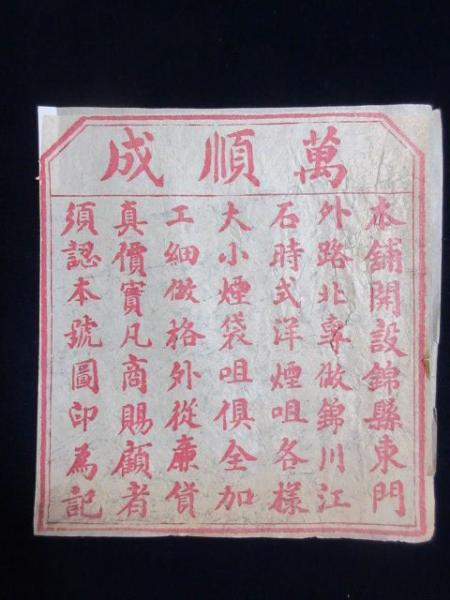 萬順成
本舖開設錦縣東門
外路北專做錦川江
石時式洋煙咀各樣
大小煙袋咀俱全加
工細做格外從廉貨
真價實凡商賜顧者
須認本號圖印為記